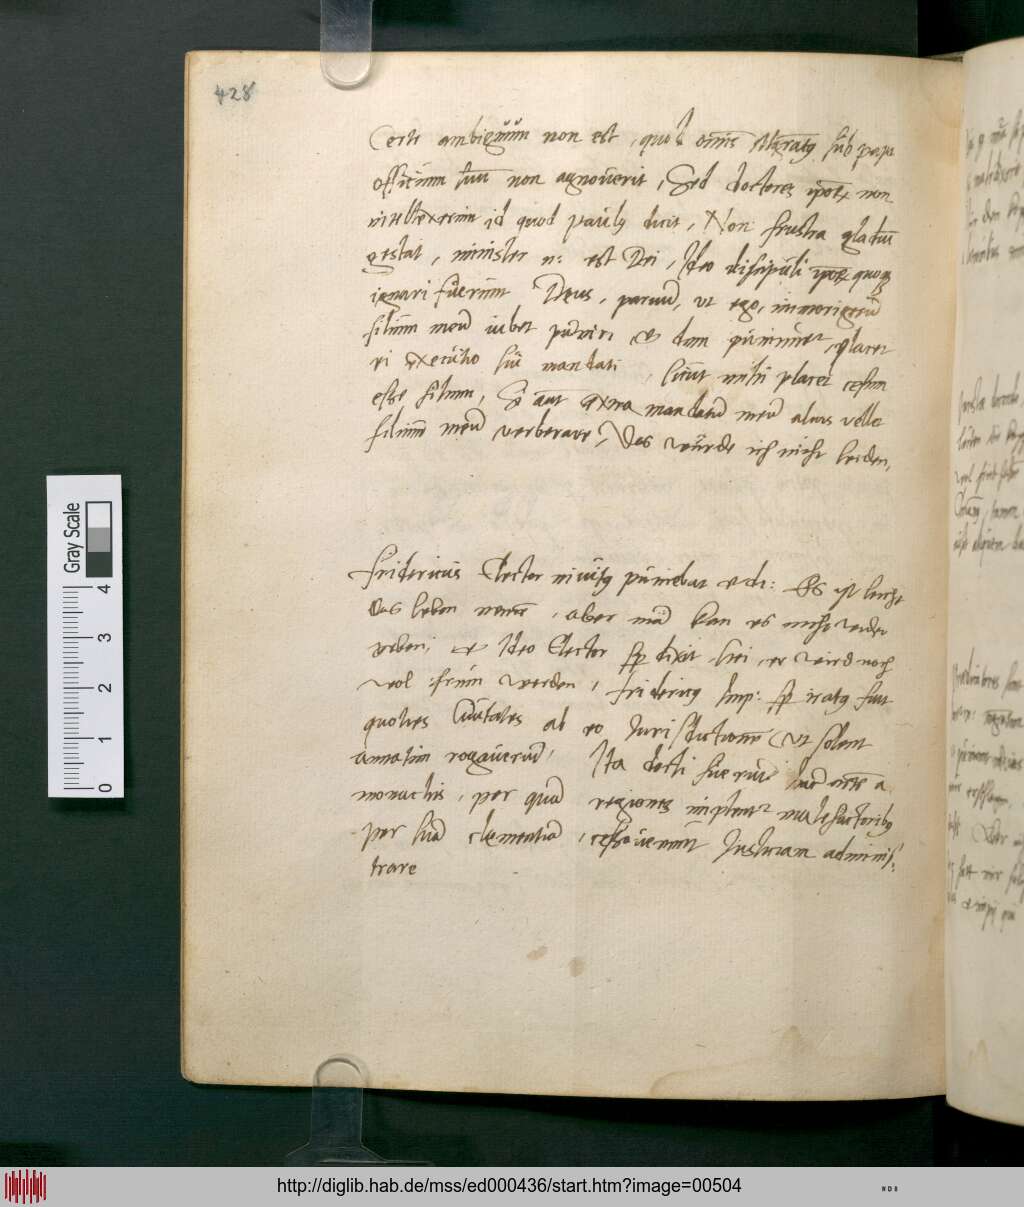 428
Certe ambiguum non est, quod omnis magistratus sub papa
officium suum non agnoverit, Sed doctores ipsorum non
intellexerunt id quod paulus dicit, Non frustra gladium
gestat, minister n: est Dei, Ideo discipuli ipsorum quoque
ignari fuerunt Deus, parentem, ut ego, immorigerum
filium meum iubet puniri, et dum punimur, placet
ei executio sui mandati, sicut mihi placet
esse filium, Si aut extra mandatum meum alius vellet
filium meum verberare, Das würde ich nicht leiden,
Fridericus Elector invitus puniebat & di: Es ist leicht
das leben nemen, aber man kan es nicht wider
geben, et Ideo Elector semper dixit hei, er wird noch
wol frum werden, Fridericus Imp: semper iratus fuit
quoties Civitates ab eo Jurisdictionem (ut solent
annatim rogaverunt, Ita docti fuerunt a
monachis, per quam regiones implentur malefactoribus
per suam clementiam, cessaverunt Justiciam adminis:
trare
Gray Scale
0 1 2 3 4
http://diglib.hab.de/mss/ed000436/start.htm?image=00504